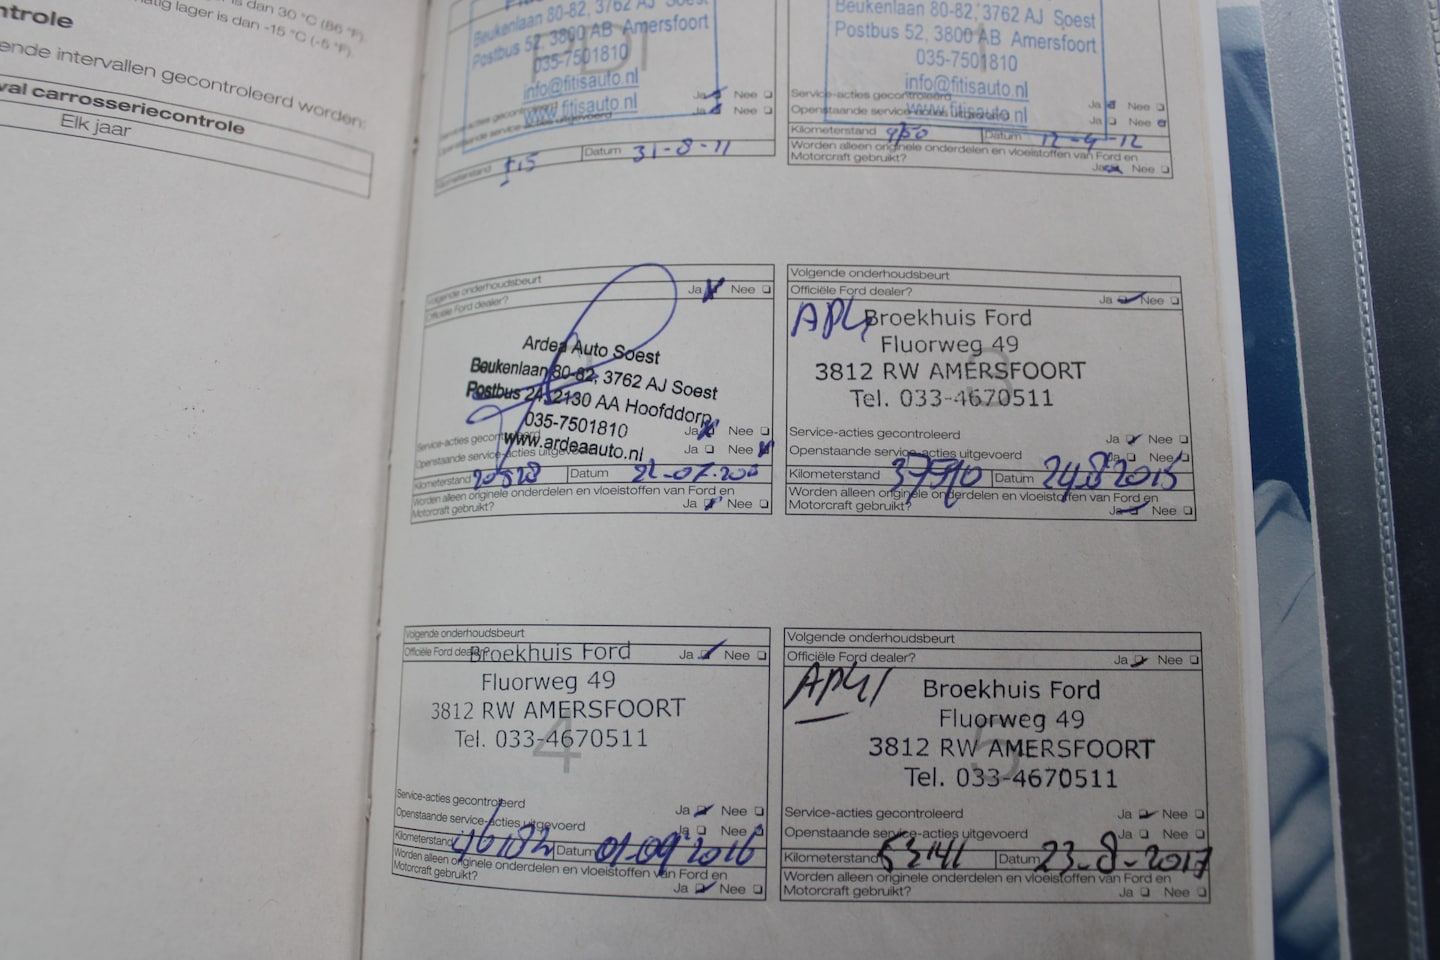 is dan 30 °C (86 °F).
matig lager is dan -15 °C (-5 °F).
ntrole
ende intervallen gecontroleerd worden:
val carrosseriecontrole
Elk jaar
Beukenlaan 80-82, 3762 AJ Soest
Postbus 52, 3800 AB Amersfoort
035-7501810
info@fitisauto.nl
www.fitisauto.nl
PDI
Ja Nee
Service-acties gecontroleerd
Ja Nee
Openstaande service-acties uitgevoerd
Kilometerstand Datum 31-8-11
Beukenlaan 80-82, 3762 AJ Soest
Postbus 52, 3800 AB Amersfoort
035-7501810
info@fitisauto.nl
www.fitisauto.nl
1
Service-acties gecontroleerd Ja Nee
Openstaande service-acties uitgevoerd Ja Nee
Kilometerstand Datum 12-4-12
Worden alleen originele onderdelen en vloeistoffen van Ford en
Motorcraft gebruikt? Ja Nee
Volgende onderhoudsbeurt
Officiële Ford dealer? Ja Nee
Ardea Auto Soest
Beukenlaan 80-82, 3762 AJ Soest
Postbus 245 2130 AA Hoofddorp
035-7501810
www.ardeaauto.nl
Service-acties gecontroleerd Ja Nee
Openstaande service-acties uitgevoerd Ja Nee
Kilometerstand 20828 Datum
Worden alleen originele onderdelen en vloeistoffen van Ford en
Motorcraft gebruikt? Ja Nee
Volgende onderhoudsbeurt
Officiële Ford dealer? Ja Nee
Broekhuis Ford
Fluorweg 49
3812 RW AMERSFOORT
Tel. 033-4670511
3
Service-acties gecontroleerd Ja Nee
Openstaande service-acties uitgevoerd Ja Nee
Kilometerstand Datum 24.8 2015
Worden alleen originele onderdelen en vloeistoffen van Ford en
Motorcraft gebruikt? Ja Nee
Volgende onderhoudsbeurt
Officiële Ford dealer? Ja Nee
Broekhuis Ford
Fluorweg 49
3812 RW AMERSFOORT
Tel. 033-4670511
4
Service-acties gecontroleerd Ja Nee
Openstaande service-acties uitgevoerd Ja Nee
Kilometerstand 46182 Datum 01-09 2016
Worden alleen originele onderdelen en vloeistoffen van Ford en
Motorcraft gebruikt? Ja Nee
Volgende onderhoudsbeurt
Officiële Ford dealer? Ja Nee
Broekhuis Ford
Fluorweg 49
3812 RW AMERSFOORT
Tel. 033-4670511
5
Service-acties gecontroleerd Ja Nee
Openstaande service-acties uitgevoerd Ja Nee
Kilometerstand 53141 Datum 23-8-2017
Worden alleen originele onderdelen en vloeistoffen van Ford en
Motorcraft gebruikt? Ja Nee